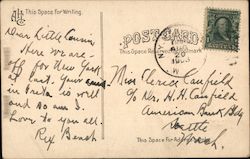 This Space For Writing.
POST CARD
This Space Reserved For Postmark
Dear Little Cousin,
Here we are
off for New York
at last. Your
in is well
and so am I
love to you all.
Rex Beach
Miss Canfield
c/o Mr. H. H. Canfield
American Bank Bldg
Seattle
Wash.
This Space For Address